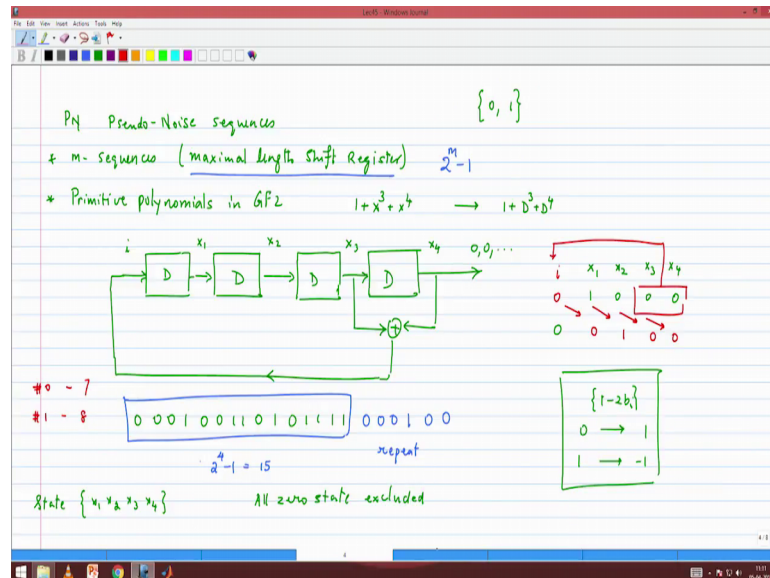 Lec45 - Windows Journal
File Edit View Insert Actions Tools Help
B I
{0, 1}
PN Pseudo-Noise sequences
* m-sequences (maximal length Shift Register) 2^m-1
* Primitive polynomials in GF2 1+x^3+x^4 → 1+D^3+D^4
i x1 x2 x3 x4 0,0,...
D D D D
+
i x1 x2 x3 x4
0 1 0 0 0
0 0 1 0 0
#0 - 7
#1 - 8
0 0 0 1 0 0 1 1 0 1 0 1 1 1 1 0 0 0 1 0 0
2^4-1 = 15 repeat
{1-2bi}
0 → 1
1 → -1
State {x1 x2 x3 x4} All zero state excluded
4
4/8
11:11